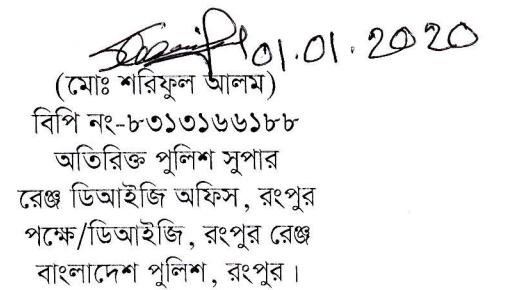 01.01.2020
(মোঃ শরিফুল আলম)
বিপি নং-৮৩১৩১৬৬১৮৮
অতিরিক্ত পুলিশ সুপার
রেঞ্জ ডিআইজি অফিস, রংপুর
পক্ষে/ডিআইজি, রংপুর রেঞ্জ
বাংলাদেশ পুলিশ, রংপুর।